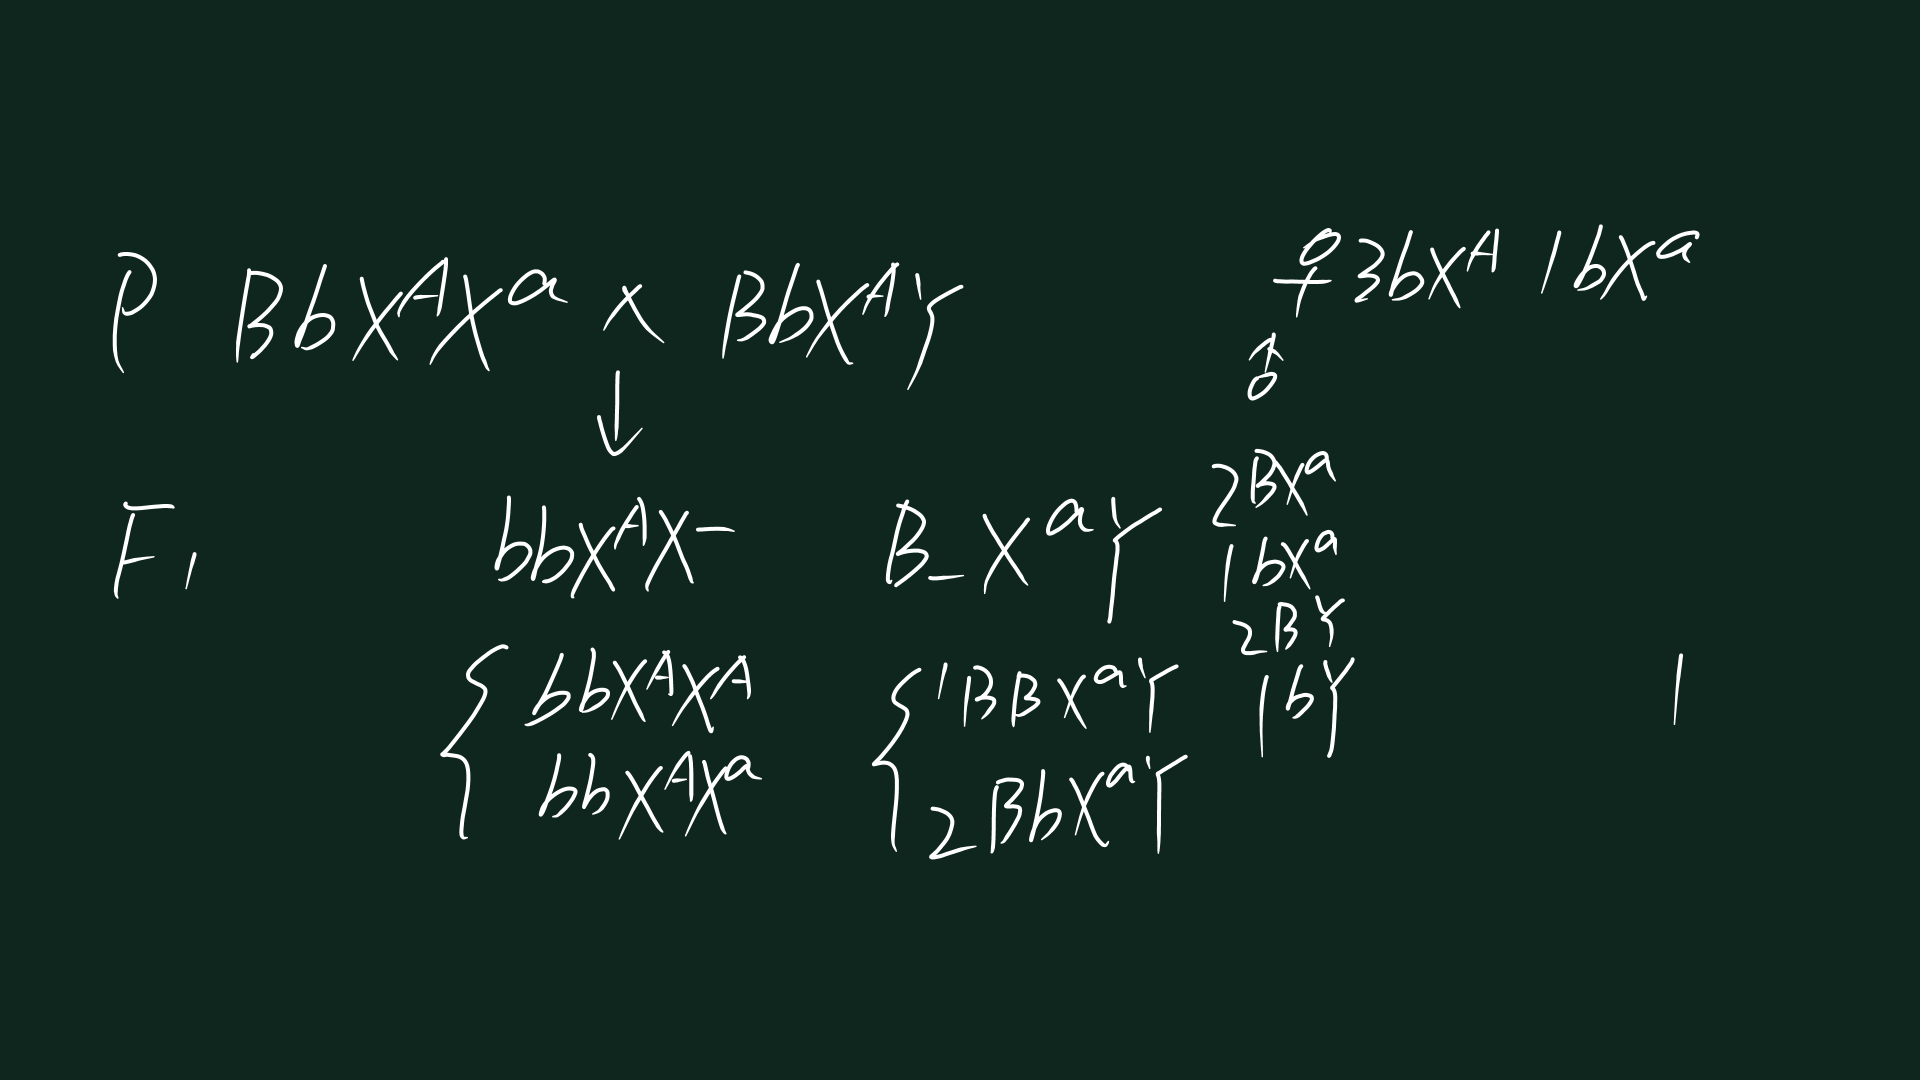 P BbXᴬXᵃ × BbXᴬY
↓
F₁ bbXᴬX⁻ B_XᵃY
{ bbXᴬXᴬ
bbXᴬXᵃ
{ 1BBXᵃY
2BbXᵃY
♀ 3bXᴬ 1bXᵃ
♂
2BXᵃ
1bXᵃ
2BY
1bY
1